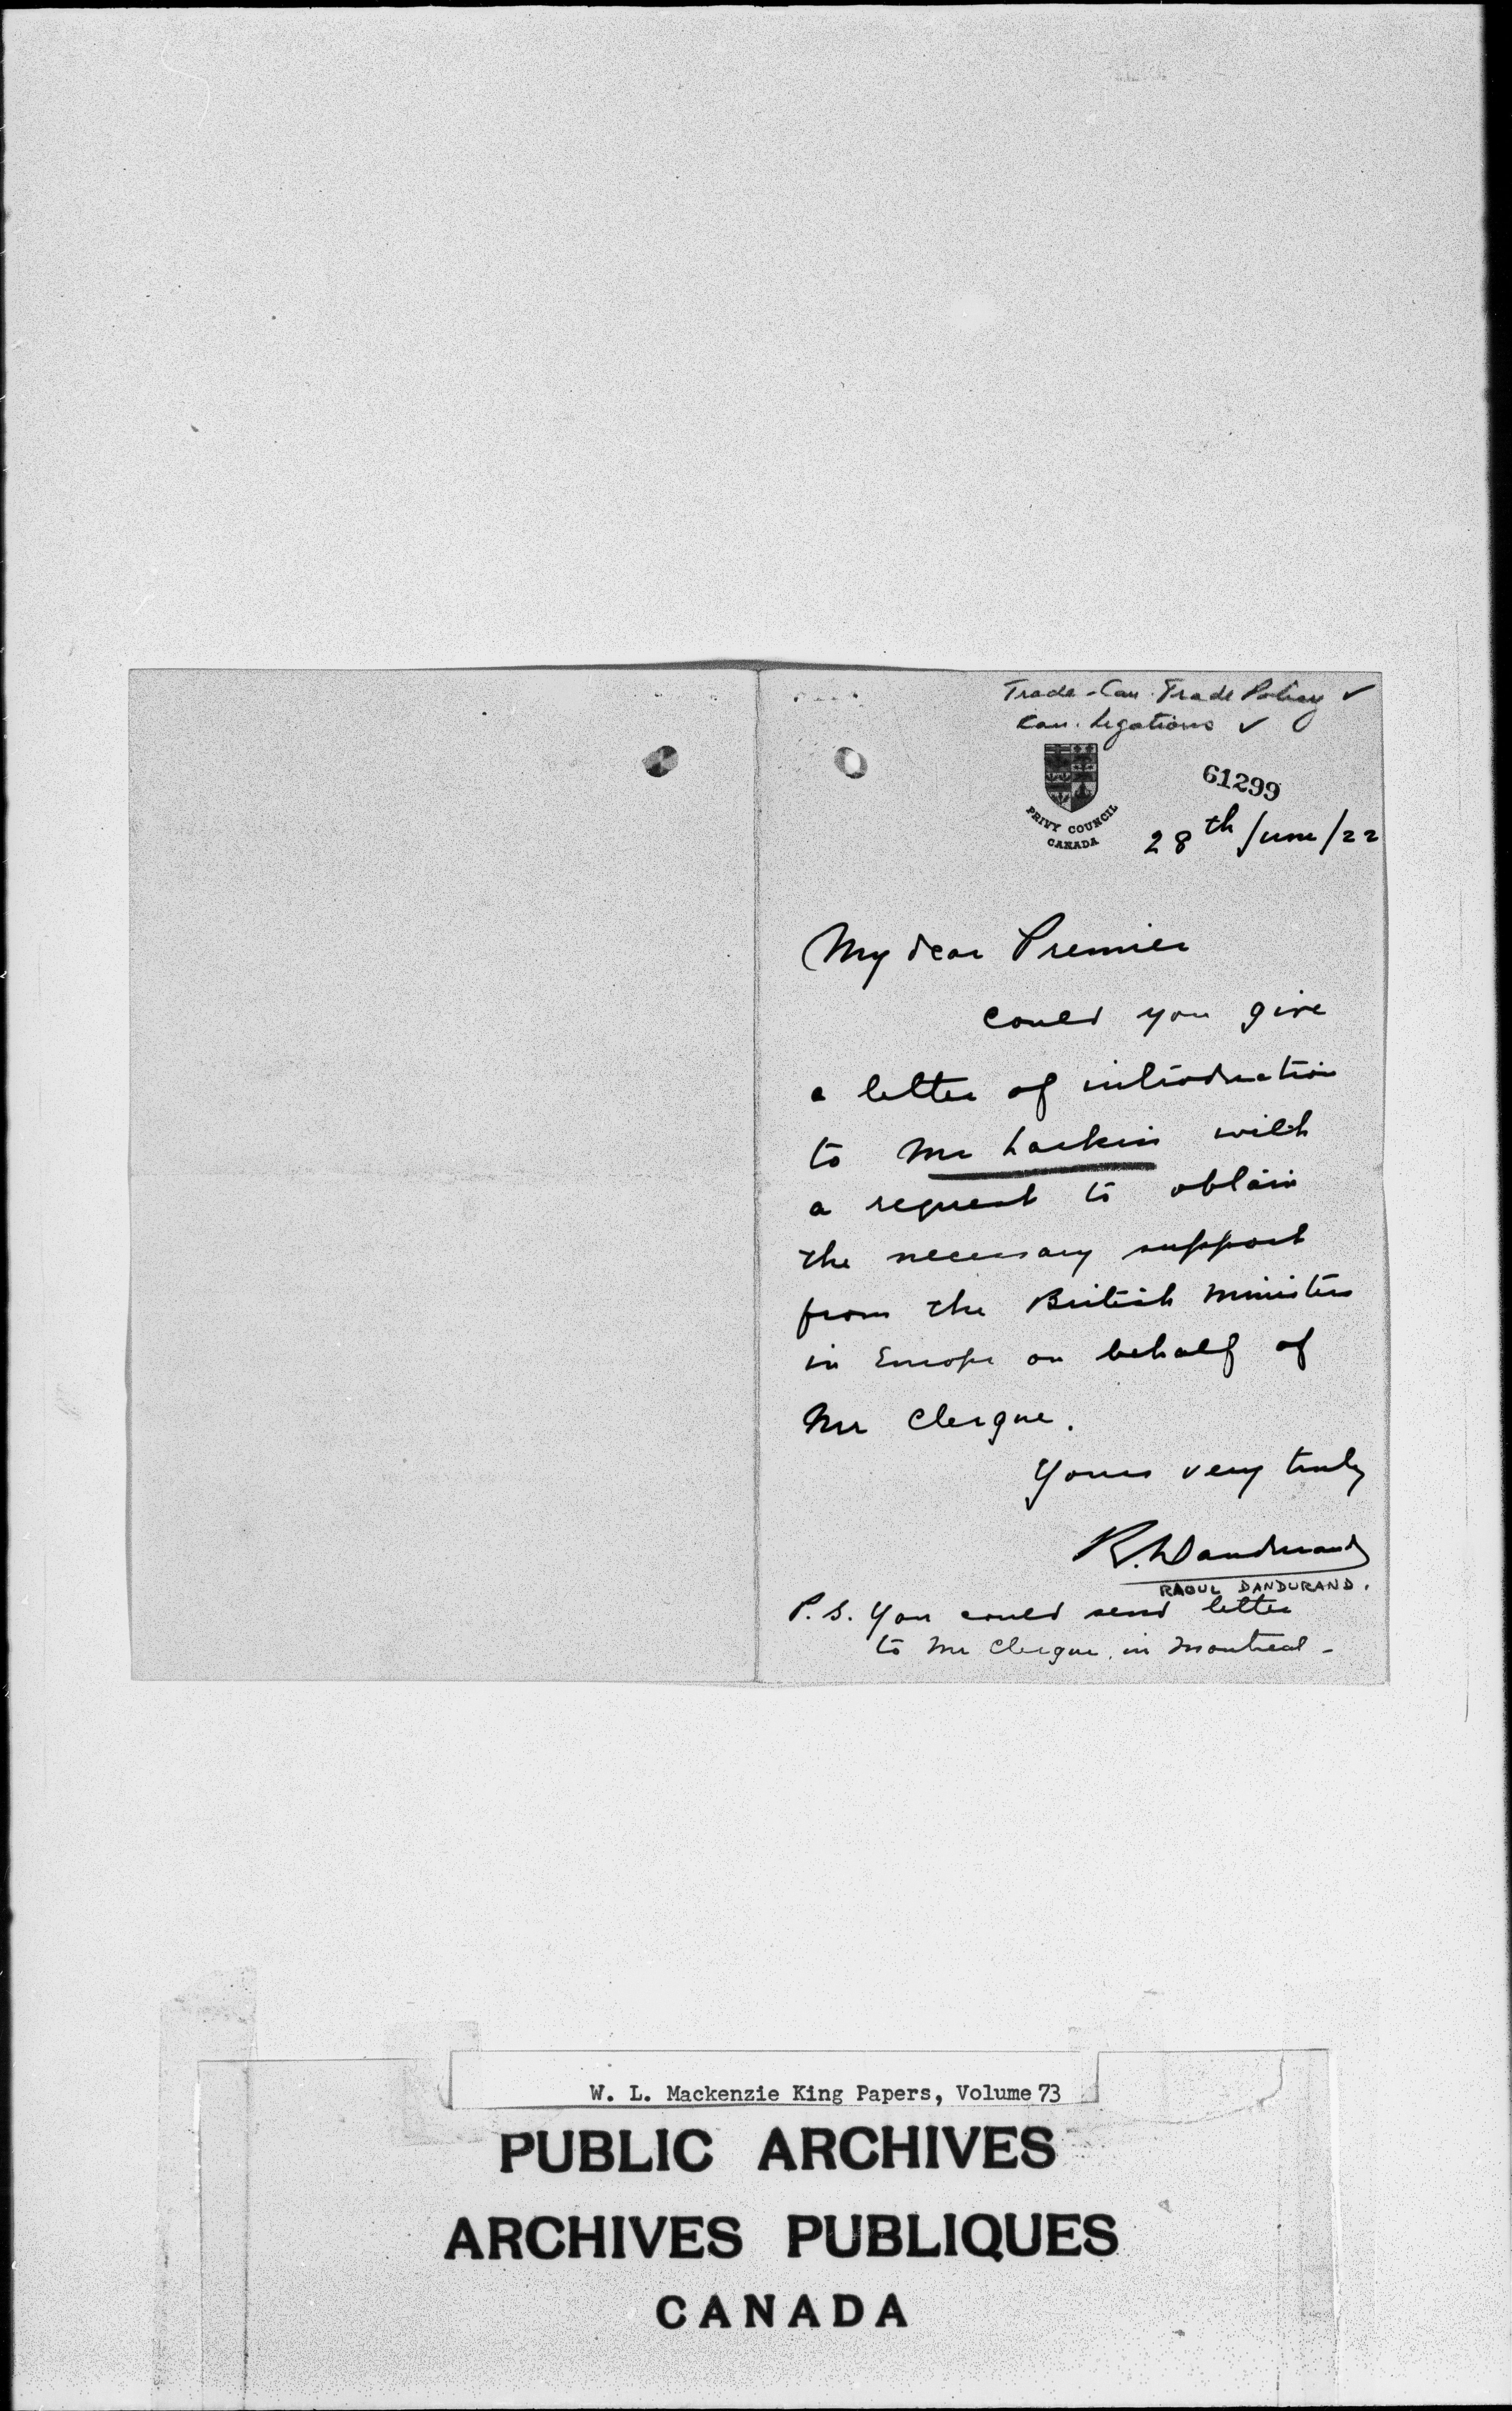 Trade - Can. Trade Policy ✓
Can. Legations ✓
61299
PRIVY COUNCIL
CANADA
28th June/22
My dear Premier
could you give
a letter of introduction
to Mr Larkin with
a request to obtain
the necessary support
from the British Ministers
in Europe on behalf of
Mr Clergue.
Yours very truly
R. Dandurand
RAOUL DANDURAND.
P.S. You could send letter
to Mr Clergue, in Montreal -
W. L. Mackenzie King Papers, Volume 73
PUBLIC ARCHIVES
ARCHIVES PUBLIQUES
CANADA